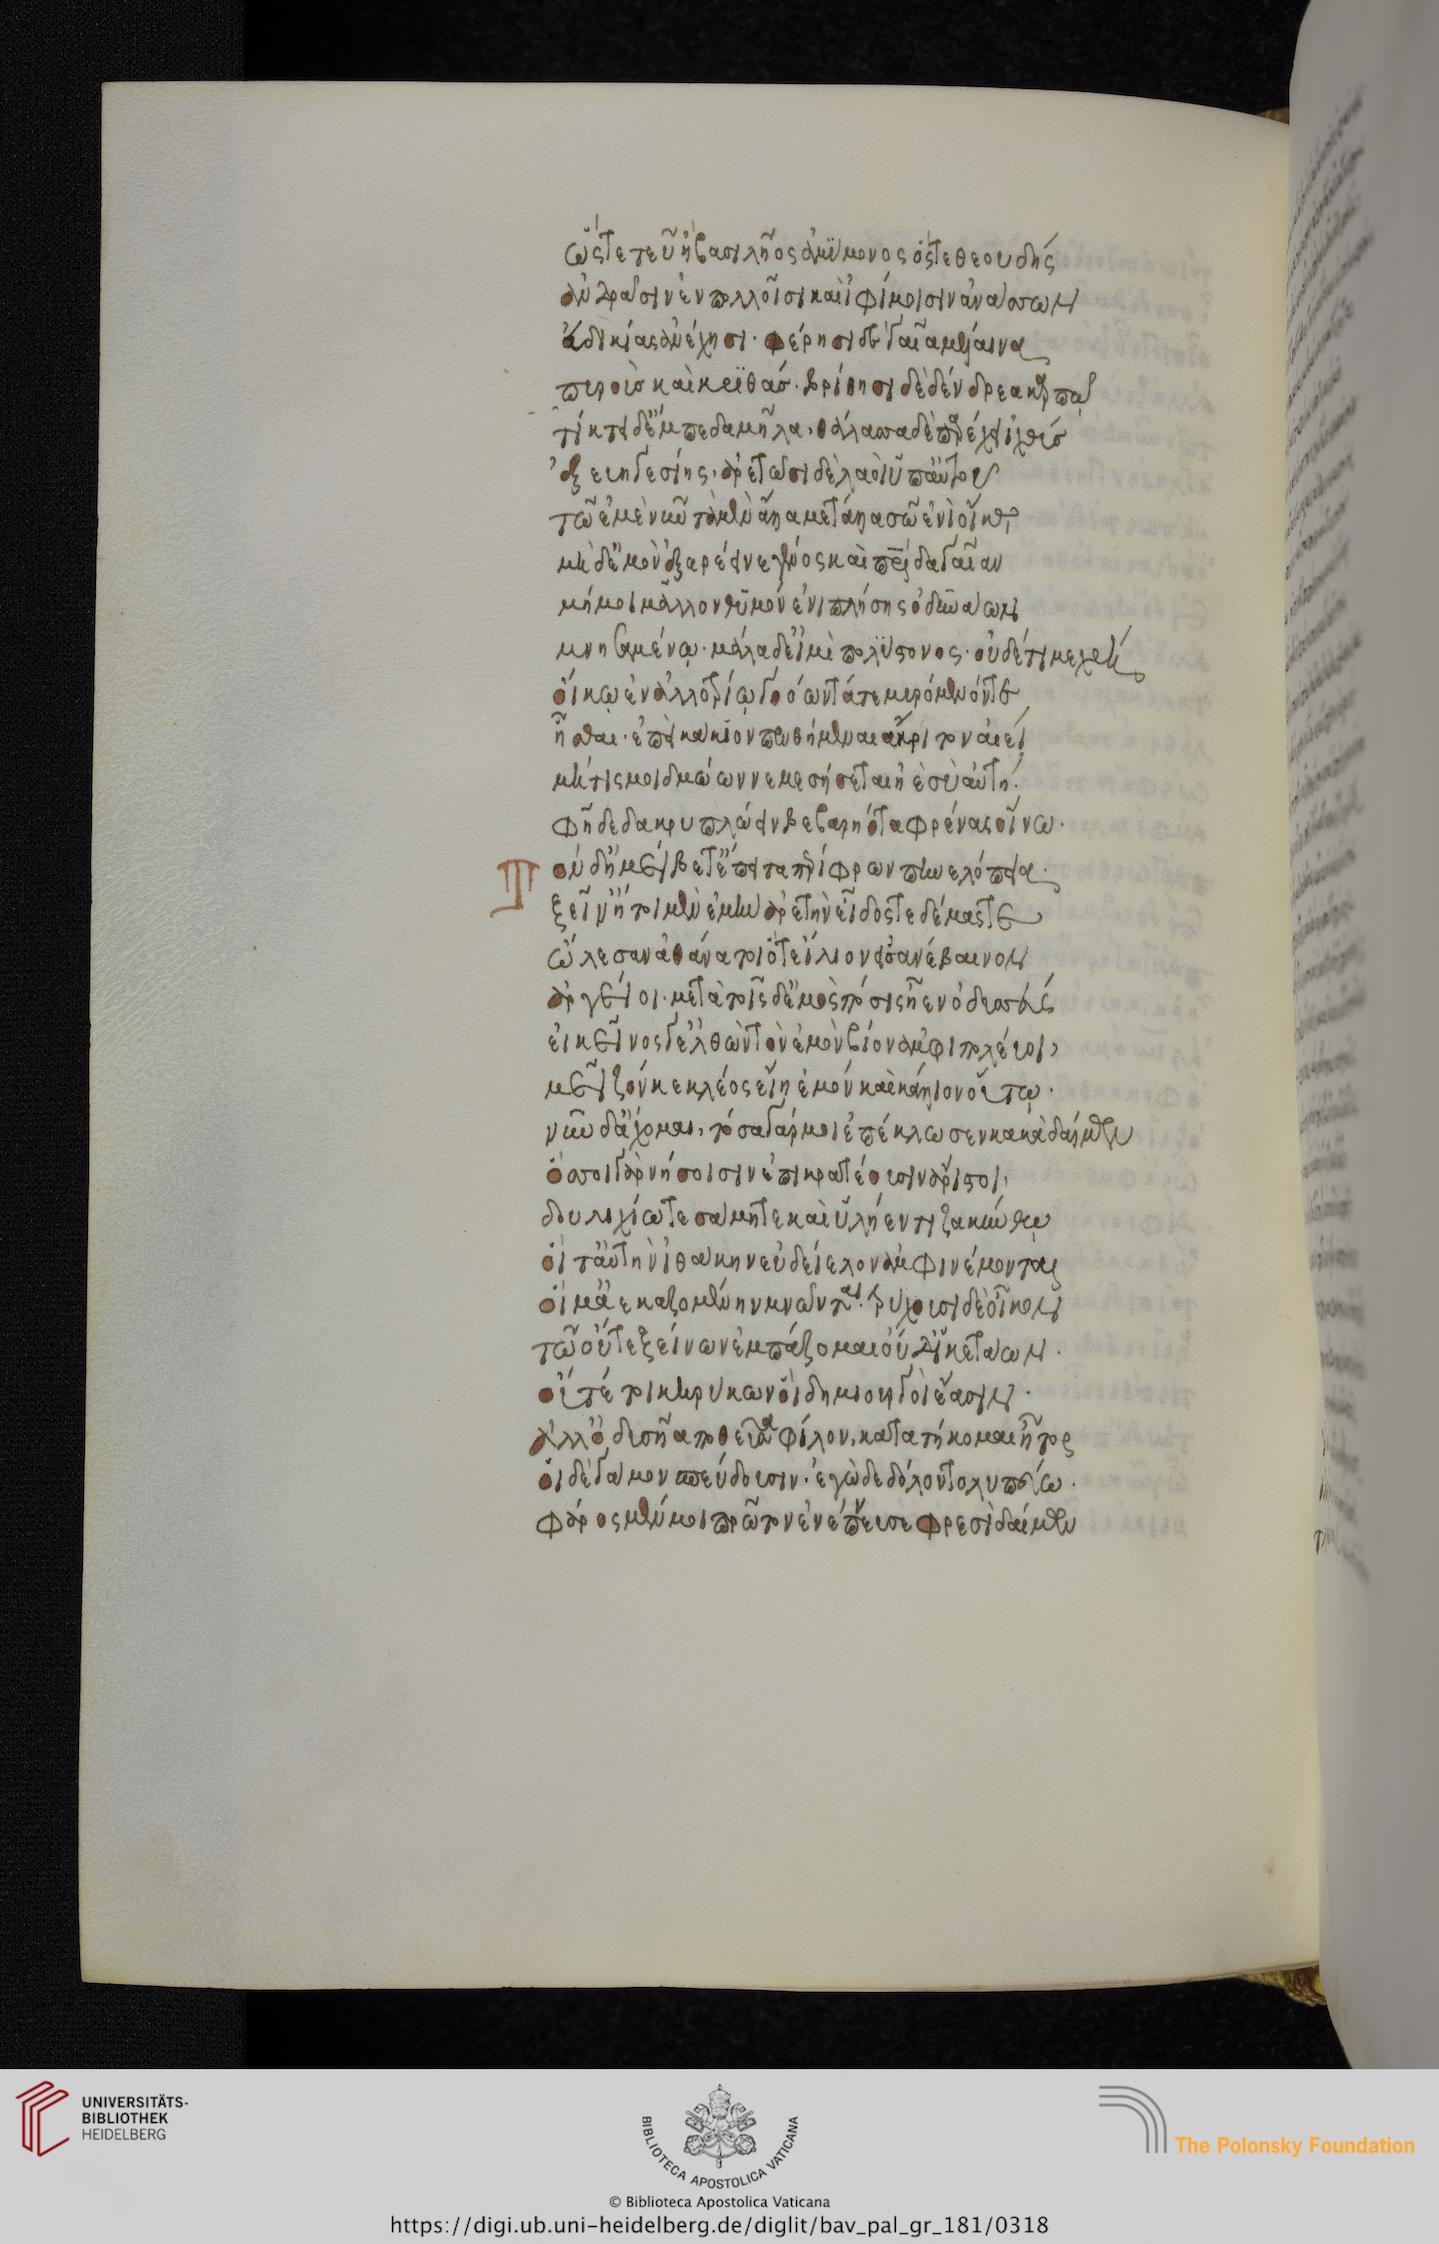 ὥς τέ τευ ἢ βασιλῆος ἀμύμονος ὅς τε θεουδὴς
ἀνδράσιν ἐν πολλοῖσι καὶ ἰφθίμοισιν ἀνάσσων
εὐδικίας ἀνέχησι· φέρησι δὲ γαῖα μέλαινα
πυροὺς καὶ κριθάς· βρίθησι δὲ δένδρεα καρπῷ
τίκτει δ' ἔμπεδα μῆλα, θάλασσα δὲ παρέχει ἰχθῦς
ἐξ εὐηγεσίης, ἀρετῶσι δὲ λαοὶ ὑπ' αὐτοῦ
τῶ ἐμὲ νῦν τὰ μὲν ἄλλα μετάλλα σῷ ἐνὶ οἴκῳ
μὴ δ' ἐμὸν ἐξερέεινε γένος καὶ πατρίδα γαῖαν
μή μοι μᾶλλον θυμὸν ἐνιπλήσης ὀδυνάων
μνησαμένῳ· μάλα δ' εἰμὶ πολύστονος· οὐδέ τί με χρὴ
οἴκῳ ἐν ἀλλοτρίῳ γοόωντά τε μυρόμενόν τε
ἧσθαι· ἐπεὶ κάκιον πενθήμεναι ἄκριτον αἰεί
μή τίς μοι δμωῶν νεμεσήσεται ἠὲ σὺ αὐτή·
φῇ δὲ δακρυπλώειν βεβαρηότα φρένας οἴνῳ·
Τὸν δ' ἠμείβετ' ἔπειτα περίφρων πηνελόπεια·
ξεῖν' ἤτοι μὲν ἐμὴν ἀρετὴν εἶδός τε δέμας τε
ὤλεσαν ἀθάνατοι ὅτε ἴλιον εἰσανέβαινον
ἀργεῖοι· μετὰ τοῖς δ' ἐμὸς πόσις ἦεν ὀδυσσεύς
εἰ κεῖνός γ' ἐλθὼν τὸν ἐμὸν βίον ἀμφιπολεύοι,
μεῖζόν κε κλέος εἴη ἐμὸν καὶ κάλλιον οὕτω·
νῦν δ' ἄχομαι, τόσα γάρ μοι ἐπέκλωσεν κακὰ δαίμων
ὅσσοι γὰρ νήσοισιν ἐπικρατέουσιν ἄριστοι,
δουλιχίῳ τε σάμῃ τε καὶ ὑλήεντι ζακύνθῳ
οἵ τ' αὐτὴν ἰθάκην εὐδείελον ἀμφινέμονται
οἵ μ' ἀεκαζομένην μνῶνται· τρύχουσι δὲ οἶκον
τῶ οὔτε ξείνων ἐμπάζομαι οὔθ' ἱκετάων·
οὔτέ τι κηρύκων οἳ δημιοεργοὶ ἔασιν·
ἀλλ' ὀδυσῆα ποθεῦσα φίλον, κατατήκομαι ἦτορ
οἱ δὲ γάμον σπεύδουσιν· ἐγὼ δὲ δόλους τολυπεύω·
φᾶρος μέν μοι πρῶτον ἐνέπνευσε φρεσὶ δαίμων
UNIVERSITÄTS-
BIBLIOTHEK
HEIDELBERG
BIBLIOTECA APOSTOLICA VATICANA
The Polonsky Foundation
© Biblioteca Apostolica Vaticana
https://digi.ub.uni-heidelberg.de/diglit/bav_pal_gr_181/0318